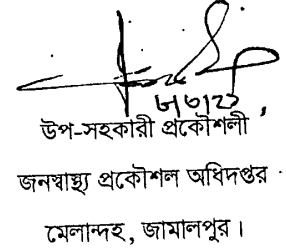 উপ-সহকারী প্রকৌশলী
জনস্বাস্থ্য প্রকৌশল অধিদপ্তর
মেলান্দহ, জামালপুর।